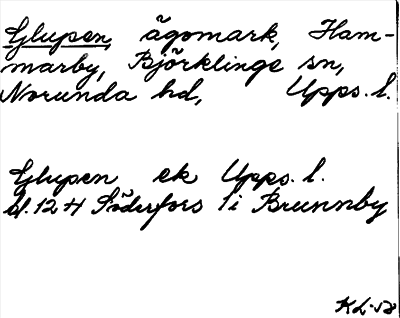 Glupen, ägomark, Ham-
marby, Björklinge sn,
Norunda hd, Upps. l.
Glupen ek Upps. l.
bl. 12 H Söderfors 1i Brunnby